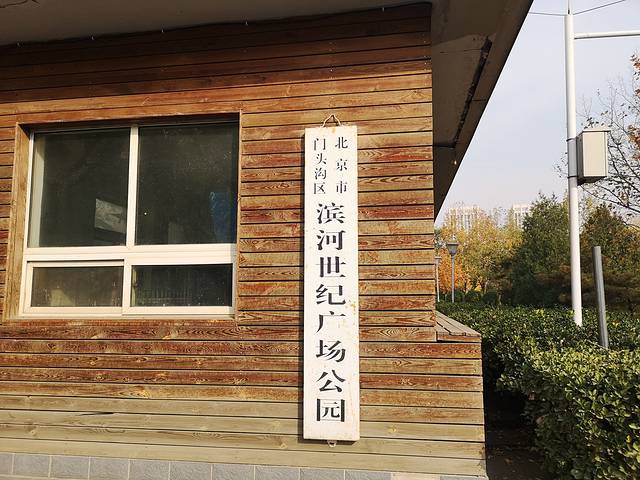 北京市
门头沟区
滨河世纪广场公园